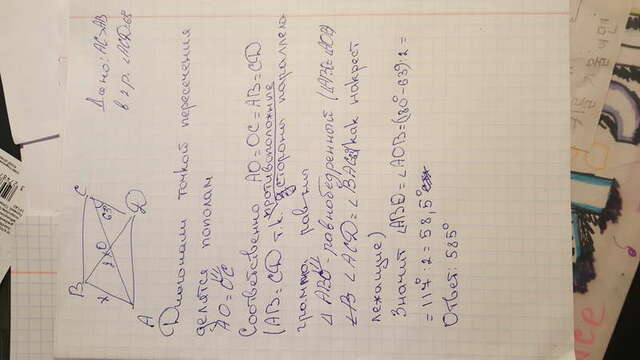 Дано: AC>AB
в 2 р. ∠ACD=63
B
C
x
O
63°
A
D
Диагонали точкой пересечения
делятся пополам
AO=OC
Соответственно AO=OC=AB=CD
(AB=CD т.к. противоположные
стороны параллело-
грамма равны
△ABO - равнобедренный (∠ABO=∠AOB)
∠ACD=∠BAC как накрест
лежащие)
Значит ∠ABO=∠AOB=(180°-63):2=
=117°:2=58,5°
Ответ: 585°